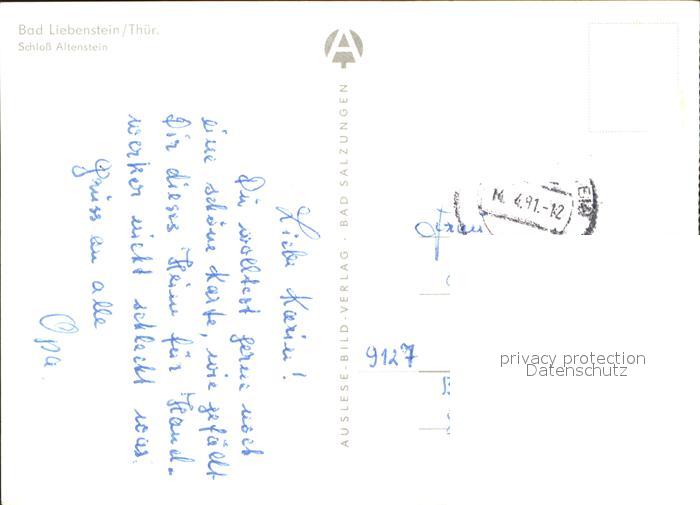 Bad Liebenstein/Thür.
Schloß Altenstein
Liebe Karin!
Du wolltest gerne noch
eine schöne Karte, wie gefällt
Dir dieses Heim für Hand-
werker nicht schlecht was.
Gruss an alle
Opa.
AUSLESE-BILD-VERLAG · BAD SALZUNGEN
4.91.-12
Frau
9127
privacy protection
Datenschutz